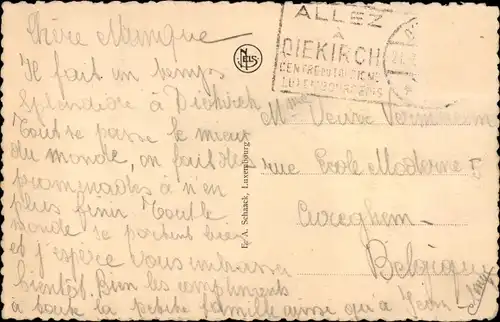 Chère Manique
Il fait un temps
splendide à Diekirch
Tout se passe le mieux
du monde, on fait des
promenades à n'en
plus finir Tout le
monde se portent bien
et j'espère vous embrasser
bientôt. Bien les compliments
à toute la petite famille ainsi qu'à
NELS
E. A. Schaack, Luxembourg
ALLEZ
À
DIEKIRCH
CENTRE DU TOURISME
LUXEMBOURGEOIS
Mme Veuve
rue École Moderne 5
Cureghem
Belgique